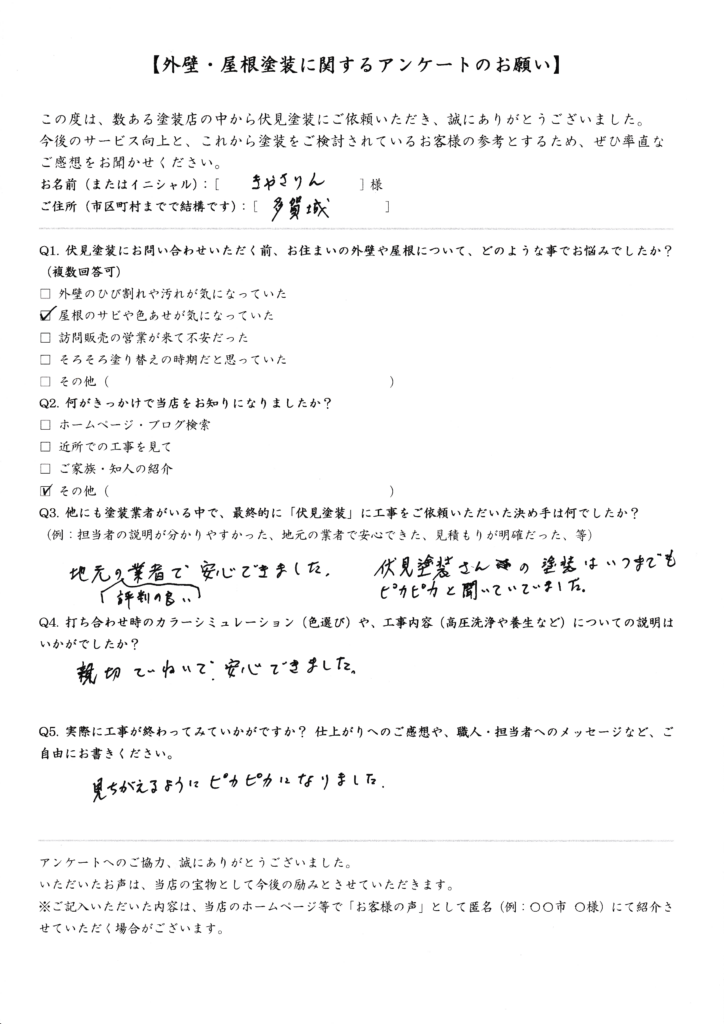 【外壁・屋根塗装に関するアンケートのお願い】
この度は、数ある塗装店の中から伏見塗装にご依頼いただき、誠にありがとうございました。
今後のサービス向上と、これから塗装をご検討されているお客様の参考とするため、ぜひ率直な
ご感想をお聞かせください。
お名前（またはイニシャル）：[ きゃさりん ] 様
ご住所（市区町村までで結構です）：[ 多賀城 ]
Q1. 伏見塗装にお問い合わせいただく前、お住まいの外壁や屋根について、どのような事でお悩みでしたか？
（複数回答可）
□ 外壁のひび割れや汚れが気になっていた
☑ 屋根のサビや色あせが気になっていた
□ 訪問販売の営業が来て不安だった
□ そろそろ塗り替えの時期だと思っていた
□ その他（ ）
Q2. 何がきっかけで当店をお知りになりましたか？
□ ホームページ・ブログ検索
□ 近所での工事を見て
□ ご家族・知人の紹介
☑ その他（ ）
Q3. 他にも塗装業者がいる中で、最終的に「伏見塗装」に工事をご依頼いただいた決め手は何でしたか？
（例：担当者の説明が分かりやすかった、地元の業者で安心できた、見積もりが明確だった、等）
地元の業者で安心できました。
評判の良い
伏見塗装さんの塗装はいつまでも
ピカピカと聞いていていました。
Q4. 打ち合わせ時のカラーシミュレーション（色選び）や、工事内容（高圧洗浄や養生など）についての説明は
いかがでしたか？
親切ていねいで、安心できました。
Q5. 実際に工事が終わってみていかがですか？ 仕上がりへのご感想や、職人・担当者へのメッセージなど、ご
自由にお書きください。
見ちがえるようにピカピカになりました。
アンケートへのご協力、誠にありがとうございました。
いただいたお声は、当店の宝物として今後の励みとさせていただきます。
※ご記入いただいた内容は、当店のホームページ等で「お客様の声」として匿名（例：〇〇市 〇様）にて紹介さ
せていただく場合がございます。